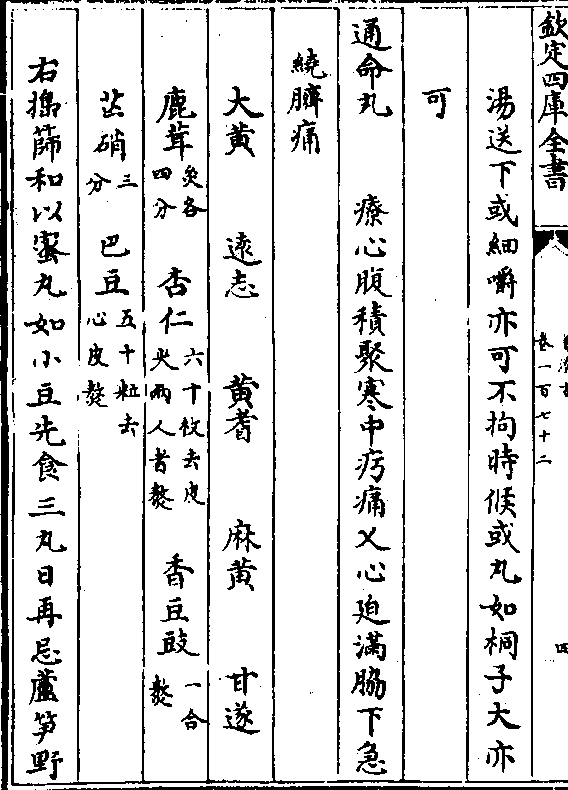 欽定四庫全書
卷一百七十二
四
湯送下或細嚼亦可不拘時候或丸如桐子大亦
可
通命丸 療心腹積聚寒中疠痛又心迫滿脇下急
繞臍痛
大黃 遠志 黃耆 麻黃 甘遂
鹿茸炙各四分 杏仁六十枚去皮尖兩人者熬 香豆豉一合熬
芒硝三分 巴豆五十粒去心皮熬
右搗篩和以蜜丸如小豆先食三丸日再忌蘆笋野